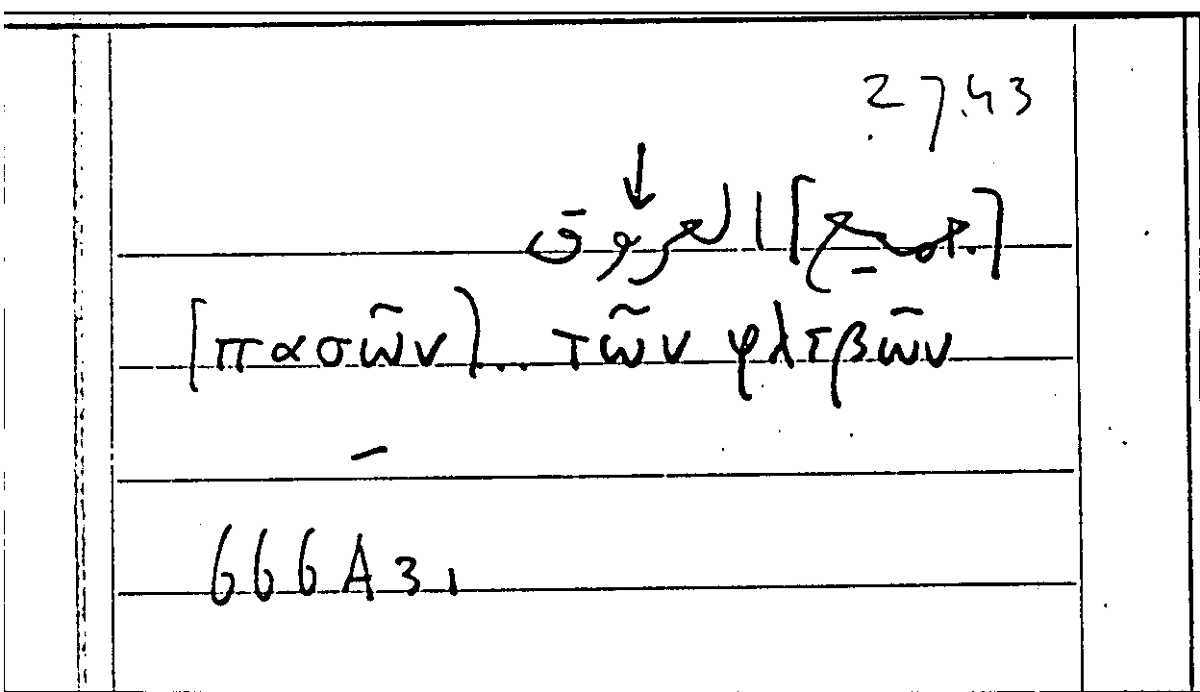 27.43
[جميع] العروق
[πασῶν]... τῶν φλεβῶν
666A31